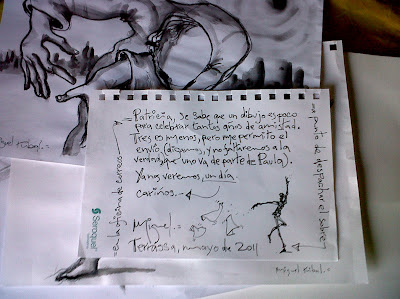 = Patricia, se sabe que un dibujo es poco
para celebrar tantos años de amistad.
Tres no menos, pero me permito el
envío (digamos, y no faltaremos a la
verdad, que uno va de parte de Paula).
Ya nos veremos, un día.
Cariños.=
Miguel.=
Terrassa, mayo de 2011
= en la oficina de correos =
a punto de despachar el sobre
Senoquel
Miguel Ridral.=
Miguel